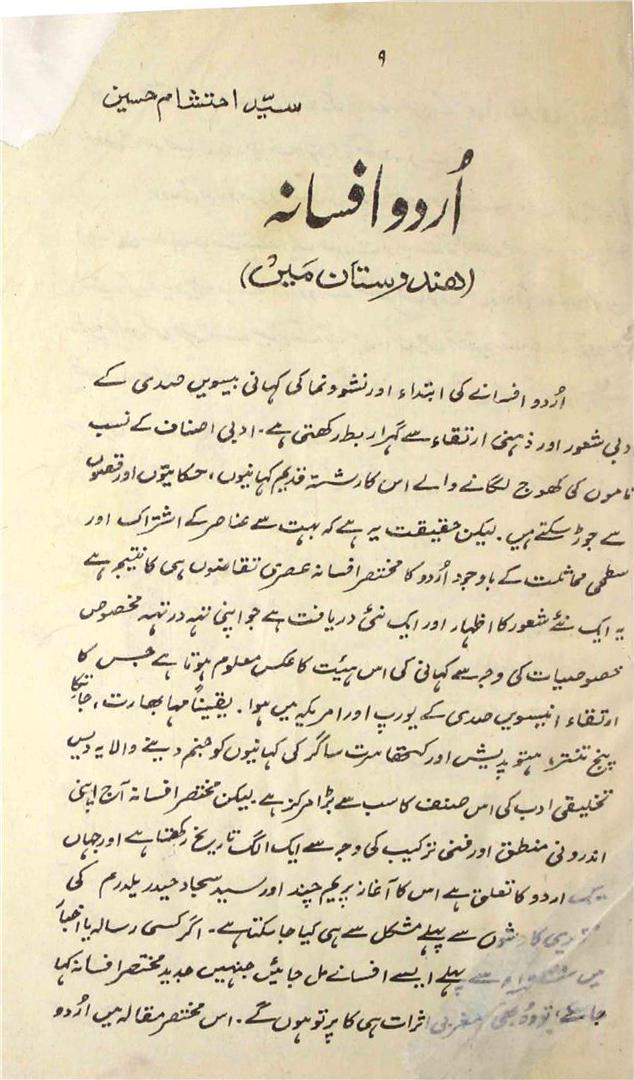 ۹
سیّد احتشام حسین
اُردو افسانہ
(ہندوستان میں)
اُردو افسانے کی ابتداء اور نشوونما کی کہانی بیسویں صدی کے
ادبی شعور اور ذہنی ارتقاء سے گہرا ربط رکھتی ہے۔ ادبی اصناف کے نسب
ناموں کی کھوج لگانے والے اس کا رشتہ قدیم کہانیوں، حکایتوں اور قصّوں
سے جوڑ سکتے ہیں۔ لیکن حقیقت یہ ہے کہ بہت سے عناصر کے اشتراک اور
سطحی مماثلت کے باوجود اُردو کا مختصر افسانہ عصری تقاضوں ہی کا نتیجہ ہے
یہ ایک نئے شعور کا اظہار اور ایک نئی دریافت ہے جو اپنی تہہ در تہہ مخصوص
خصوصیات کی وجہ سے کہانی کی اس ہیئت کا عکس معلوم ہوتا ہے جس کا
ارتقاء انیسویں صدی کے یورپ اور امریکہ میں ہوا۔ یقیناً مہا بھارت، جاتکا
پنچ تنتر، ہتوپدیش اور کتھا سرت ساگر کی کہانیوں کو جنم دینے والا یہ دیس
تخلیقی ادب کی اس صنف کا سب سے بڑا مرکز ہے۔ لیکن مختصر افسانہ آج اپنی
اندرونی منطق اور فنی ترکیب کی وجہ سے ایک الگ تاریخ رکھتا ہے اور جہاں
تک اردو کا تعلق ہے اس کا آغاز پریم چند اور سید سجاد حیدر یلدرم کی
کاوشوں سے پہلے مشکل سے ہی کیا جا سکتا ہے۔ اگر کسی رسالہ یا اخبار
میں سے پہلے ایسے افسانے مل جائیں جنہیں جدید مختصر افسانہ کہا
جا سکے، تو وہ بھی مغربی اثرات ہی کا پرتو ہوں گے۔ اس مختصر مقالہ میں اُردو